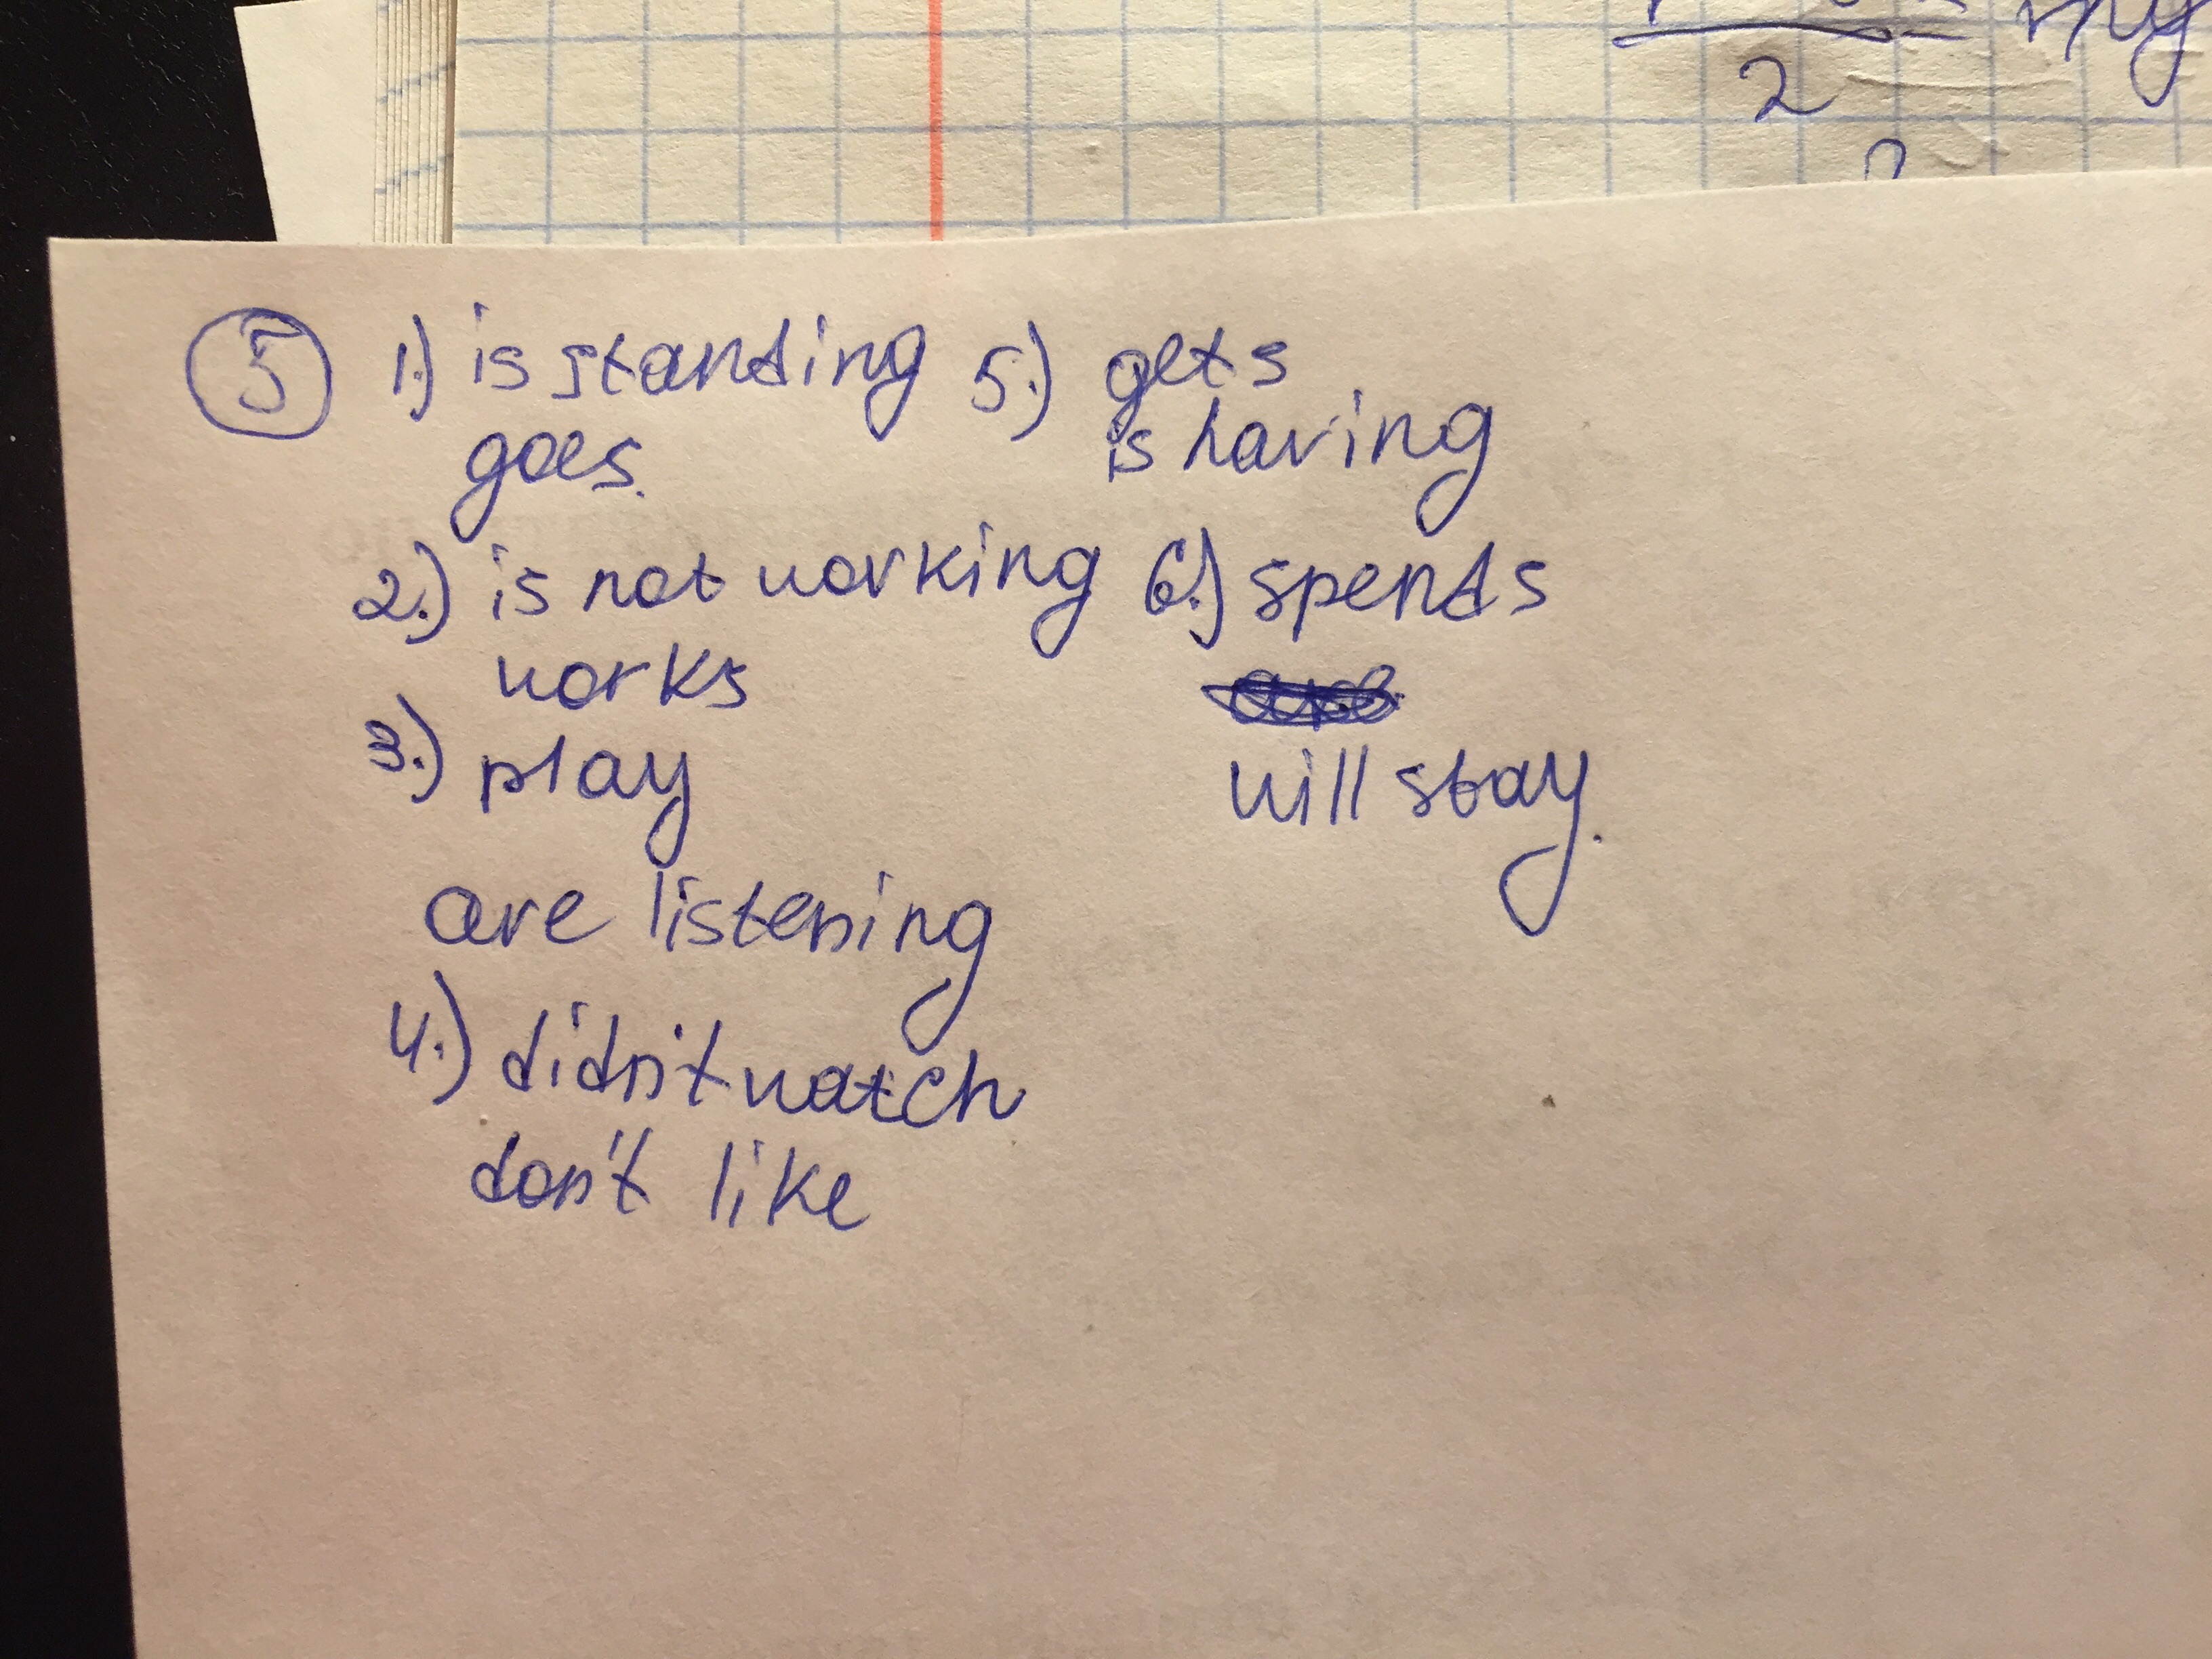 2
5
1.) is standing
goes.
2.) is not working
works
3.) play
are listening
4.) didn't watch
don't like
5.) gets
is having
6.) spends
will stay.